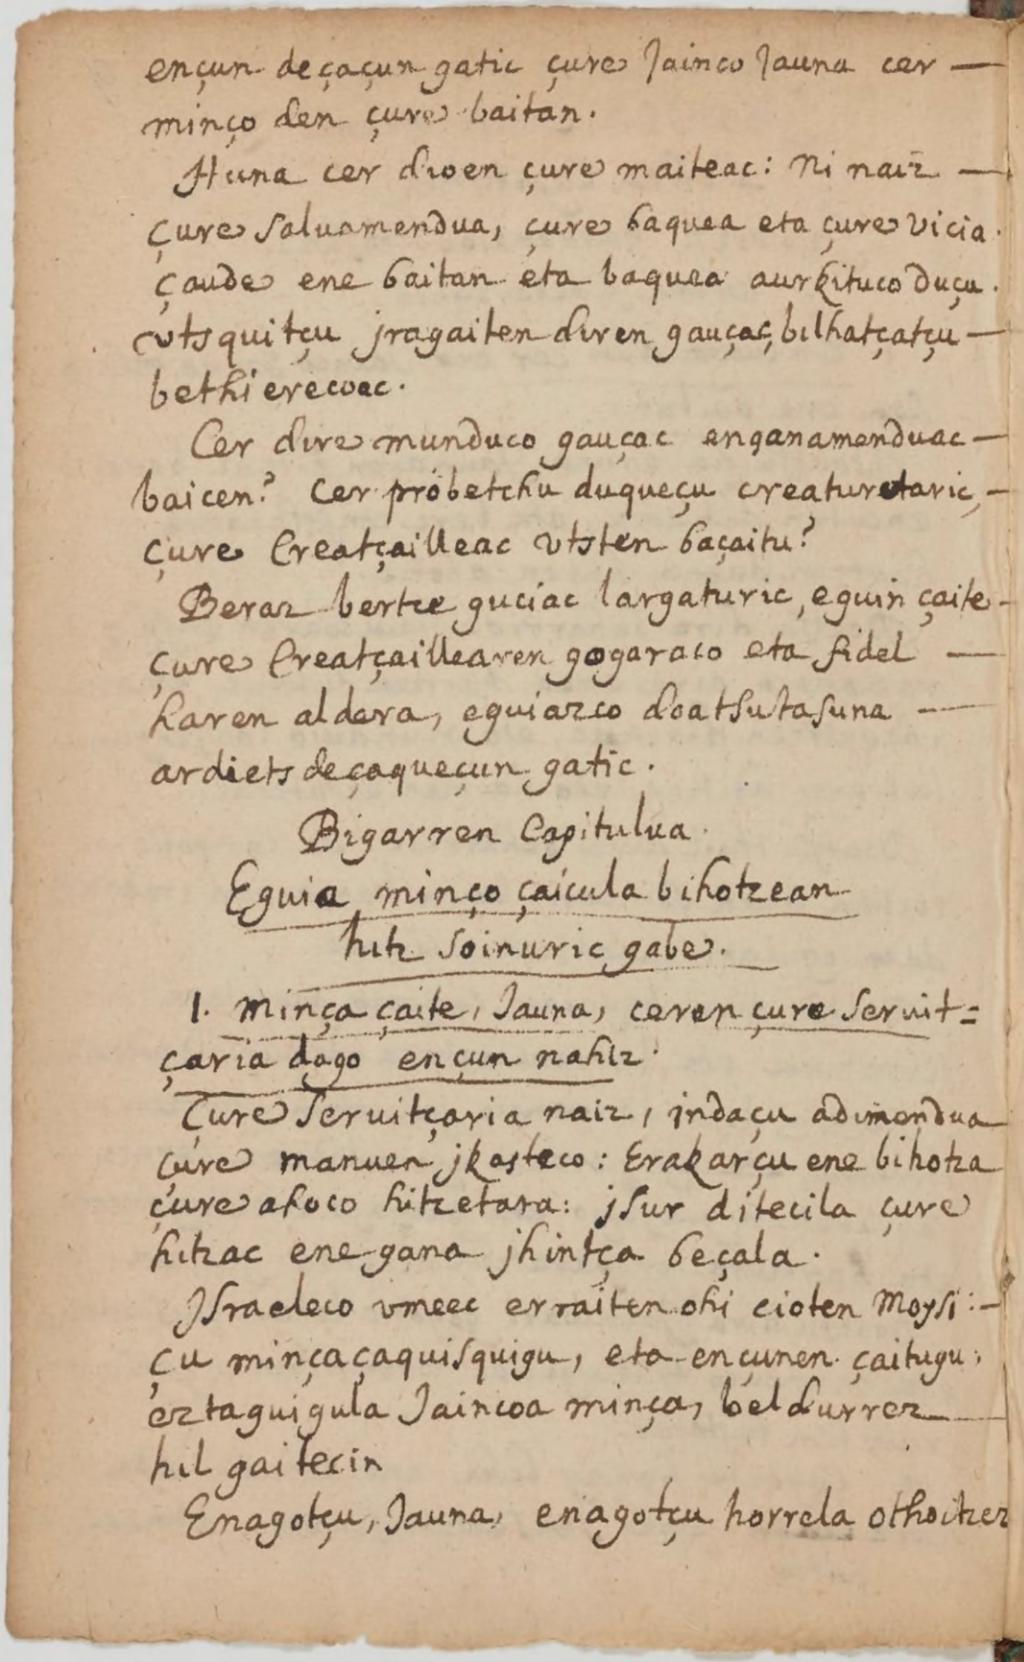 ençun deçaçun gatic çure Jainco Jauna cer —
minço den çure baitan.
Huna cer dioen çure maiteac: Ni naiz —
çure saluamendua, çure baquea eta çure vicia.
çaude ene baitan eta baquea aurkituco duçu.
vtsquitçu jragaiten diren gauçac, bilhatçatçu —
bethierecoac.
Cer dire munduco gauçac enganamenduac —
baicen? Cer probetchu duqueçu creaturetaric, —
çure Creatçailleac vtsten baçaitu?
Beraz bertze guciac largaturic, eguin çaite —
çure Creatçaillearen gogaraco eta fidel —
haren aldera, eguiazco doatsutasuna —
ardiets deçaqueçun gatic.
Bigarren Capitulua.
Eguia minço çaicula bihotzean
hitz soinuric gabe.
1. minça çaite, Jauna, ceren çure seruit=
çaria dago ençun nahiz.
Çure seruitçaria naiz, indaçu adimendua
çure manuen jkasteco: Erakarçu ene bihotza
çure ahoco hitzetara: jsur ditecila çure
hitzac ene gana jhintça beçala.
Jsraeleco vmeec erraiten ohi cioten Moysi: —
çu minça çaquisquigu, eta ençunen çaitugu;
eztaguigula Jaincoa minça, beldurrez —
hil gaitecin
Enagotçu, Jauna, enagotçu horrela othoitzez